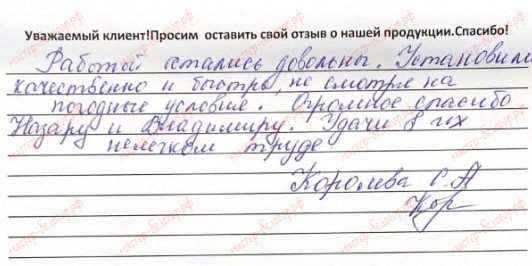 Уважаемый клиент!Просим оставить свой отзыв о нашей продукции.Спасибо!
Работой остались довольны. Установили
качественно и быстро, не смотря на
погодные условия. Огромное спасибо
Назару и Владимиру. Удачи в их
нелегком труде
Королева С.А
Кор